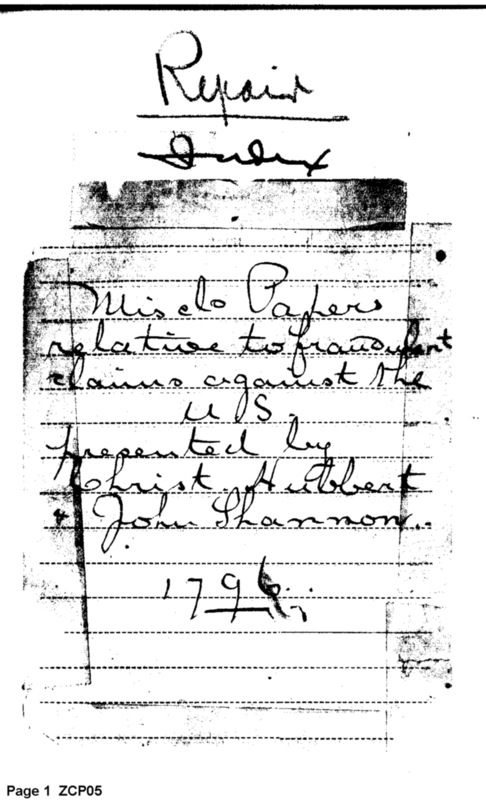 Repair
Index
Miscls Papers
relative to fraudulent
claims against the
U S.
presented by
Christ. Hubbert
& John Shannon..
1796
Page 1 ZCP05